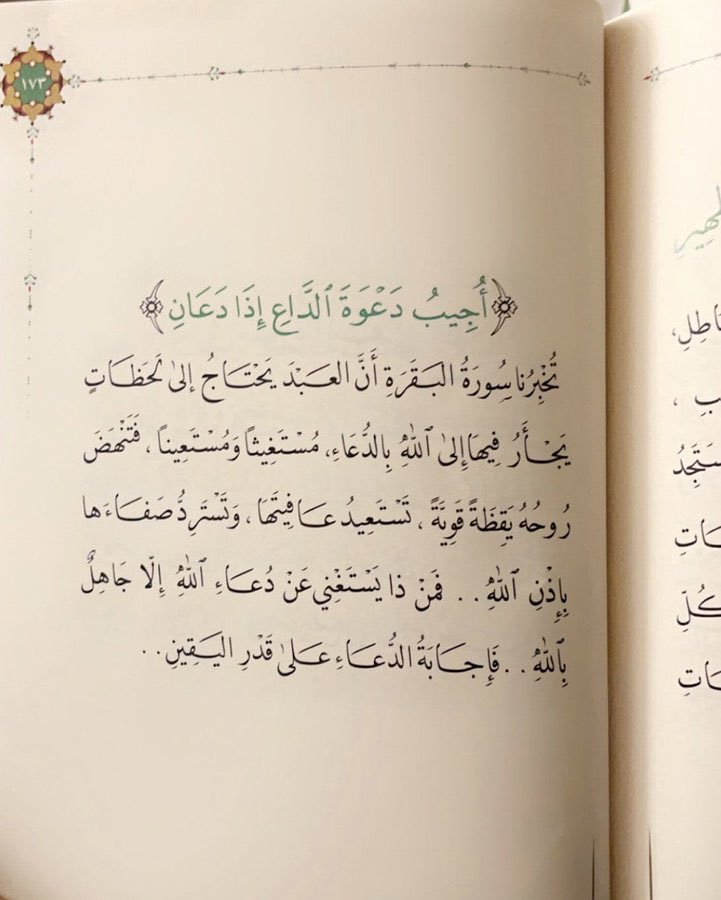 ١٧٣
﴿أُجِيبُ دَعْوَةَ ٱلدَّاعِ إِذَا دَعَانِ﴾
تُخْبِرُنا سُورَةُ البَقَرَةِ أَنَّ العَبْدَ يَحْتَاجُ إلىٰ لَحَظَاتٍ
يَجْأَرُ فِيهَا إلىٰ ٱللهِ بِالدُّعَاءِ، مُسْتَغِيثاً وَمُسْتَعِيناً، فَتَنْهَضَ
رُوحُهُ يَقِظَةً قَوِيَّةً، تَسْتَعِيدُ عَافِيتَهَا، وَتَسْتَرِدُّ صَفَاءَها
بِإِذْنِ ٱللهِ.. فَمَنْ ذا يَسْتَغْنِي عَنْ دُعَاءِ ٱللهِ إِلّا جَاهِلٌ
بِٱللهِ.. فَإِجابَةُ الدُّعَاءِ عَلىٰ قَدْرِ اليَقِينِ..